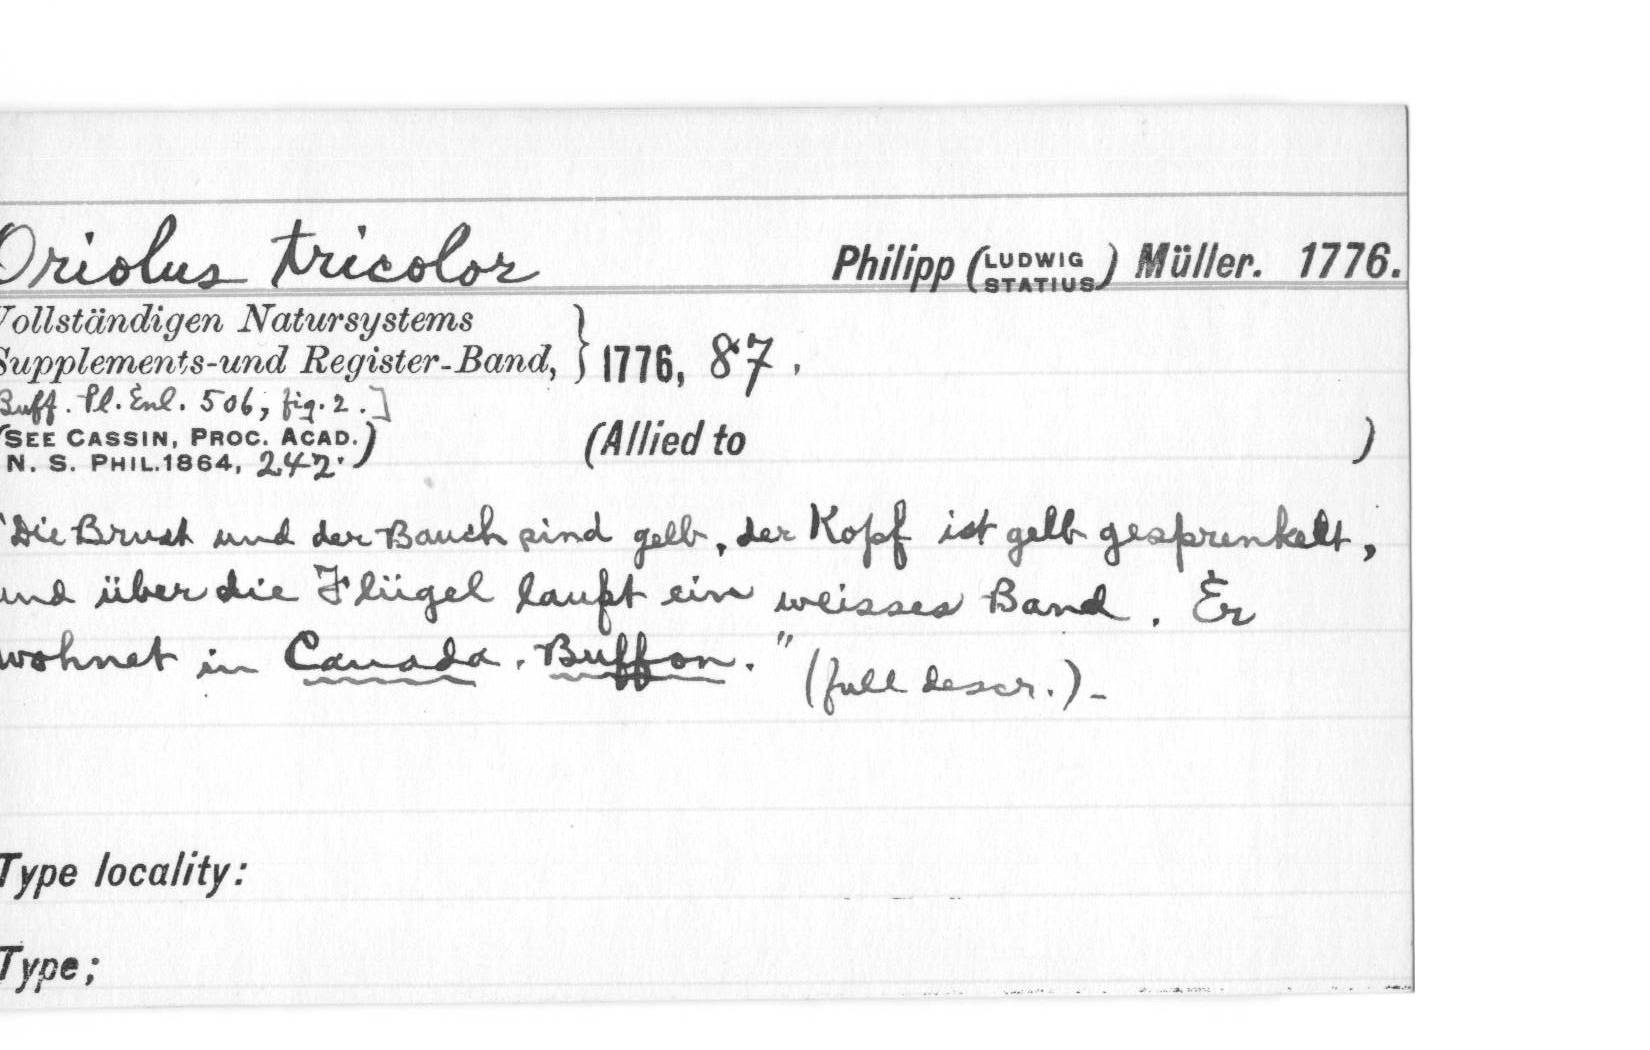 Oriolus tricolor Philipp (LUDWIG STATIUS) Müller. 1776.
Vollständigen Natursystems
Supplements-und Register-Band, } 1776, 87.
Buff. Pl. Enl. 506, fig. 2.]
(SEE CASSIN, PROC. ACAD.
N. S. PHIL. 1864, 242.)
(Allied to )
"Die Brust und der Bauch sind gelb, der Kopf ist gelb gesprenkelt,
und über die Flügel lauft ein weisses Band. Er
wohnet in Canada. Buffon." (full descr.)-
Type locality:
Type;